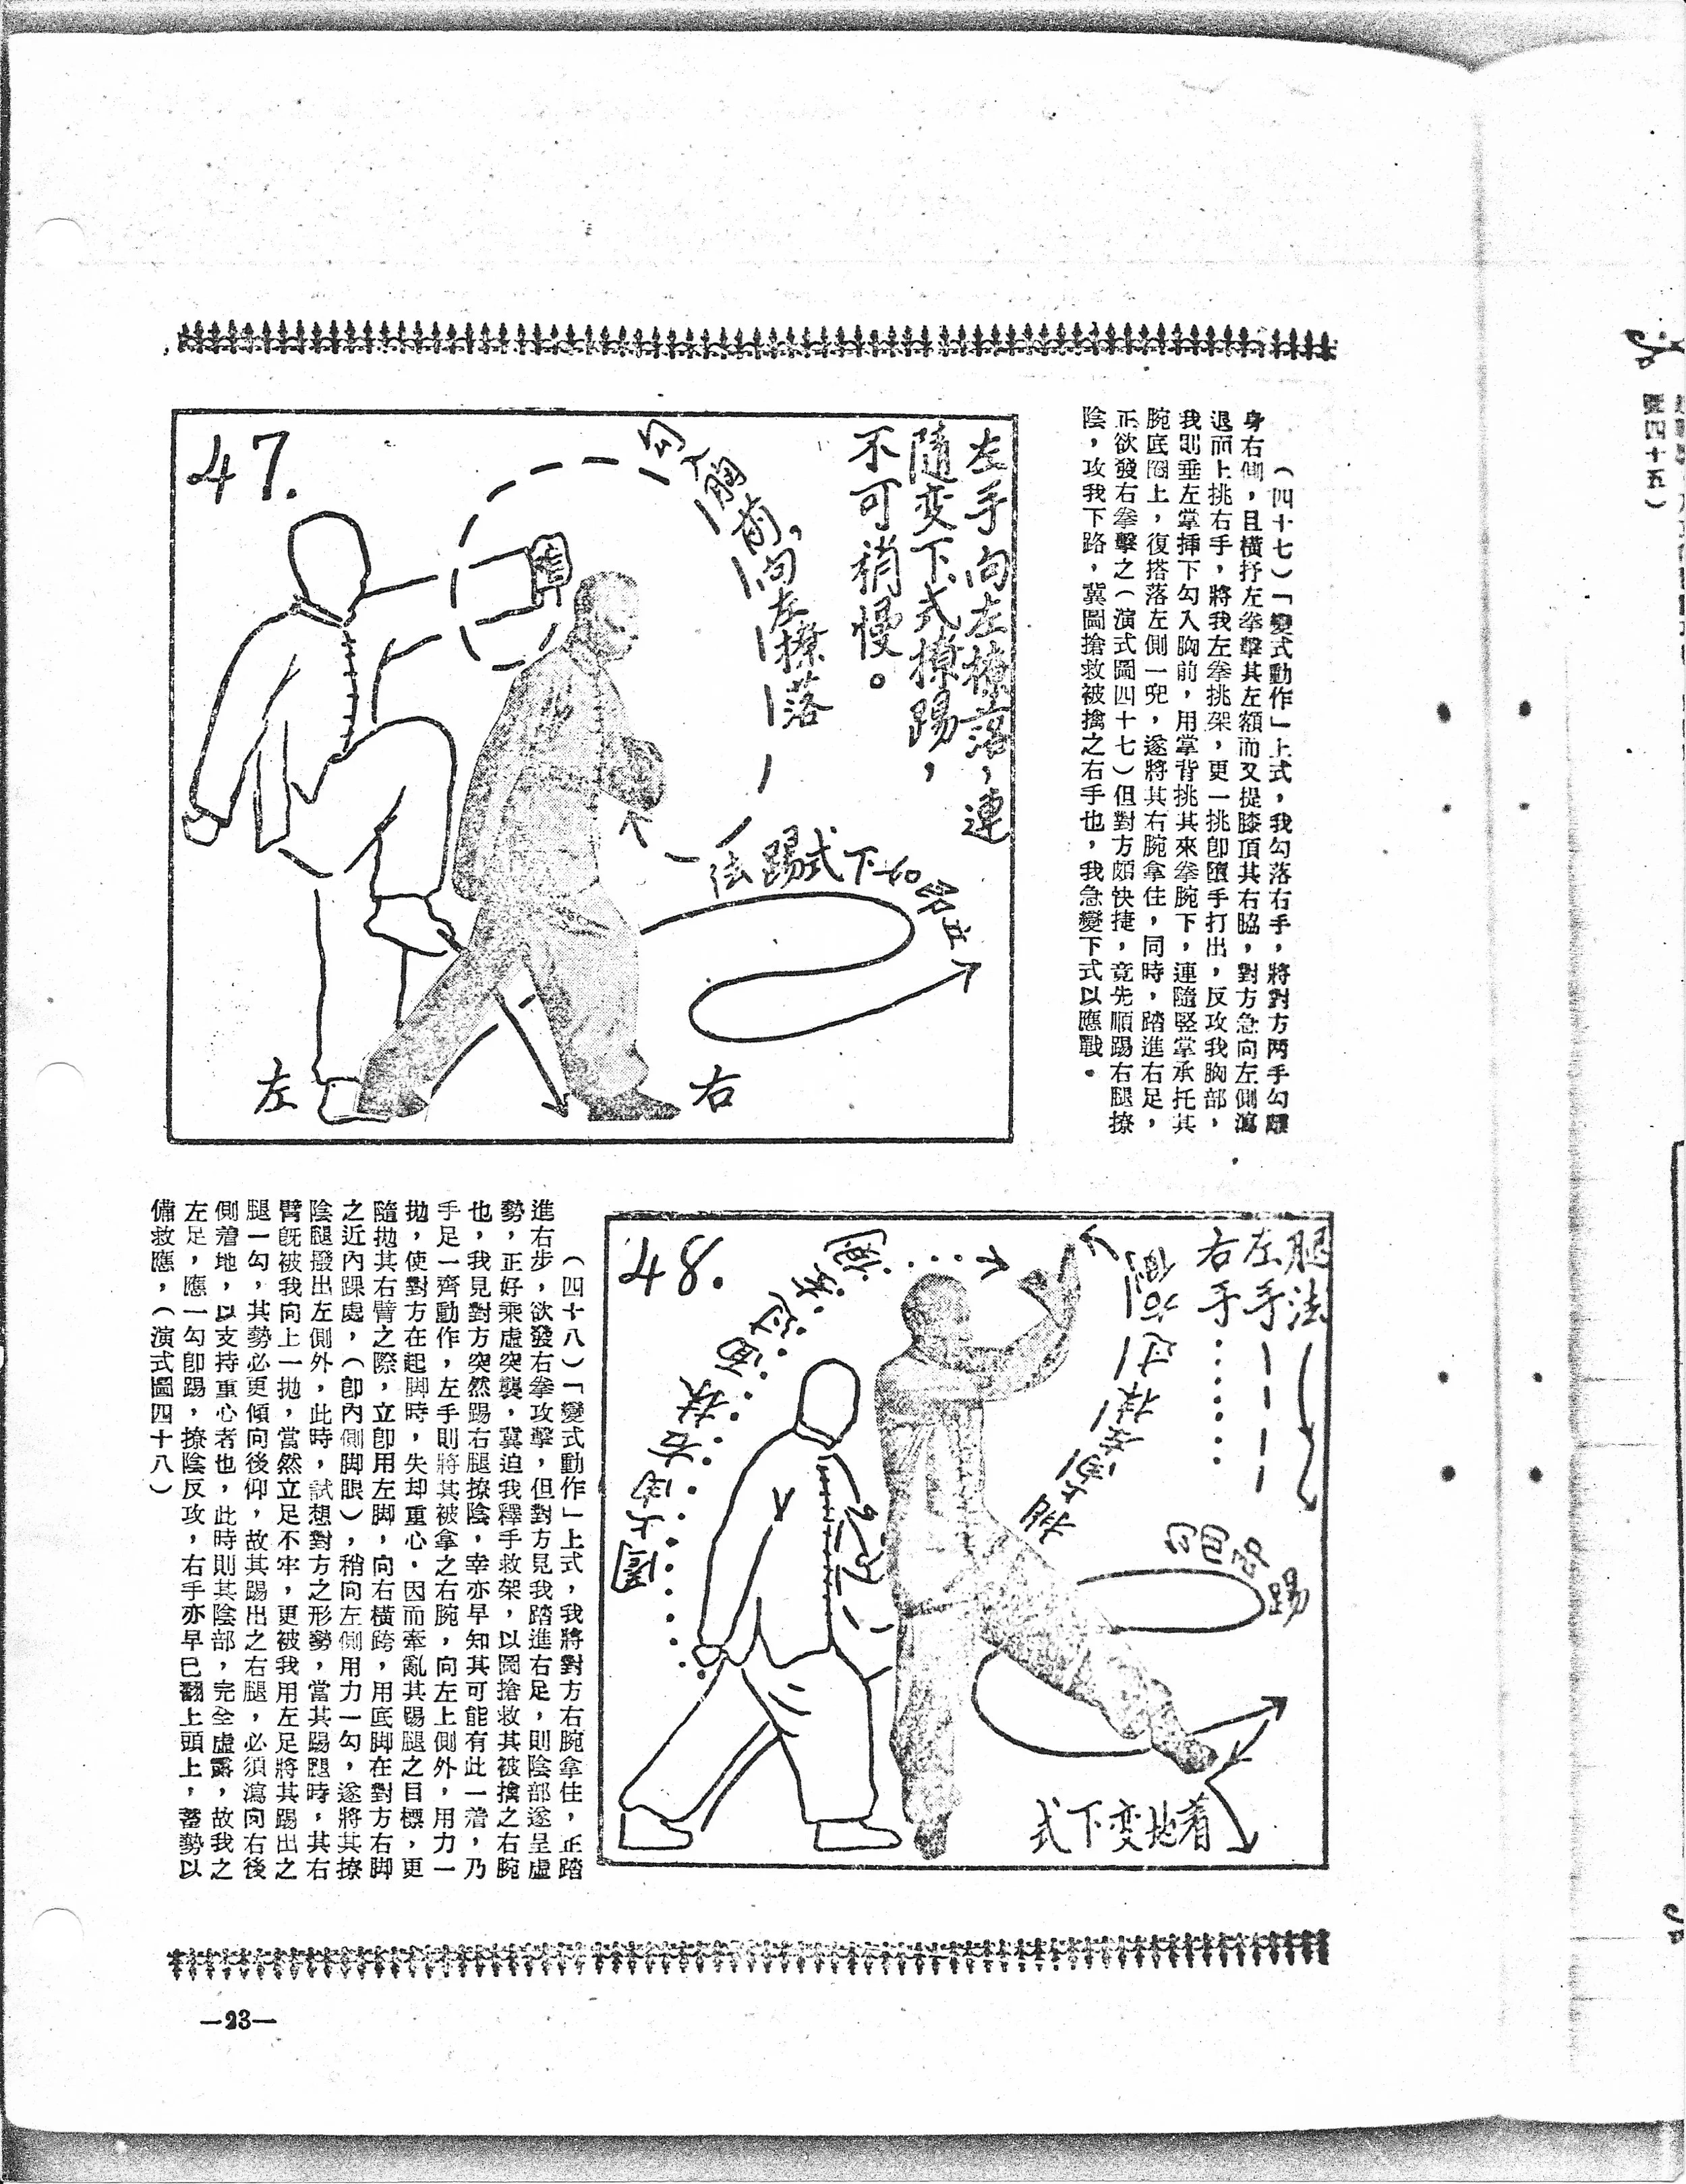 （四十七）「變式動作」上式，我勾落右手，將對方两手勾離
身右側，且橫抒左拳擊其左額而又提膝頂其右脇，對方急向左側瀉
退而上挑右手，將我左拳挑架，更一挑即墮手打出，反攻我胸部，
我則垂左掌揷下勾入胸前，用掌背挑其來拳腕下，連隨竪掌承托其
腕底圈上，復搭落左側一兜，遂將其右腕拿住，同時，踏進右足，
正欲發右拳擊之（演式圖四十七）但對方頗快捷，竟先順踢右腿撩
陰，攻我下路，冀圖搶救被擒之右手也，我急變下式以應戰。
47.
左手向左撩落，連
隨变下式撩踢，
不可稍慢。
勾入胸前，向左撩落
法踢式下如
左
右
48.
腿法
左手
右手
踢
式下变地着
（四十八）「變式動作」上式，我將對方右腕拿住，正踏
進右步，欲發右拳攻擊，但對方見我踏進右足，則陰部遂呈虛
勢，正好乘虛突襲，冀迫我釋手救架，以圖搶救其被擒之右腕
也，我見對方突然踢右腿撩陰，幸亦早知其可能有此一着，乃
手足一齊動作，左手則將其被拿之右腕，向左上側外，用力一
拋，使對方在起脚時，失却重心，因而牽亂其踢腿之目標，更
隨拋其右臂之際，立即用左脚，向右橫跨，用底脚在對方右脚
之近內踝處，（即內側脚眼），稍向左側用力一勾，遂將其撩
陰腿撥出左側外，此時，試想對方之形勢，當其踢腿時，其右
臂既被我向上一拋，當然立足不牢，更被我用左足將其踢出之
腿一勾，其勢必更傾向後仰，故其踢出之右腿，必須瀉向右後
側着地，以支持重心者也，此時則其陰部，完全虛露，故我之
左足，應一勾卽踢，撩陰反攻，右手亦早已翻上頭上，蓄勢以
備救應，（演式圖四十八）
—23—
四十五）